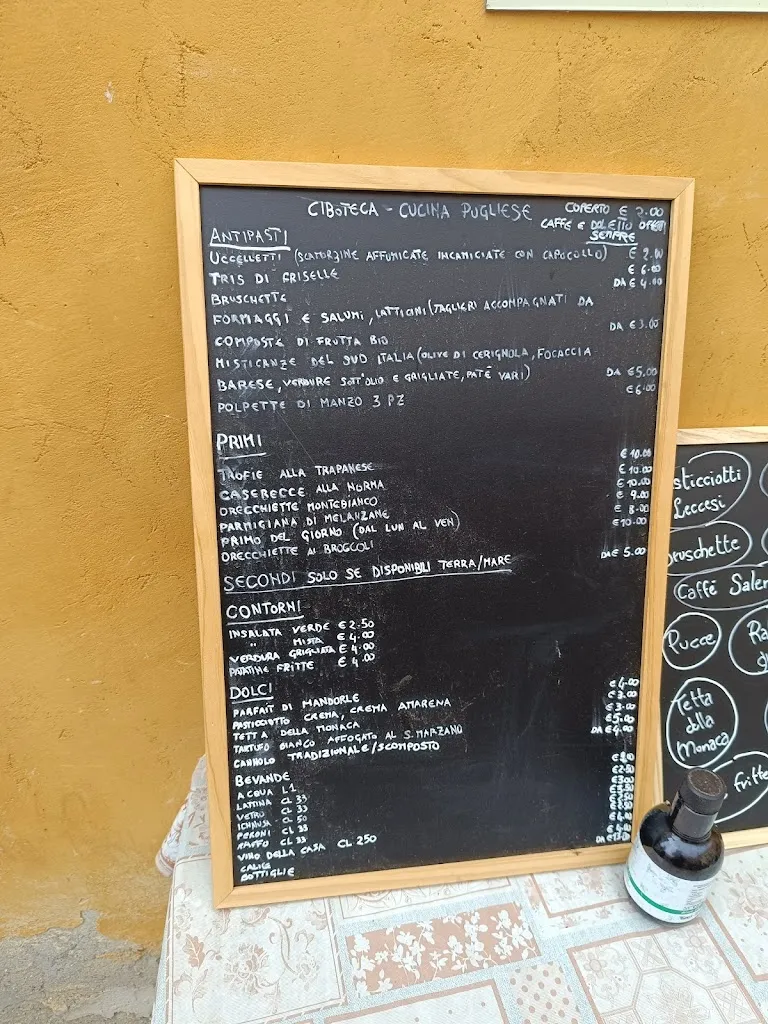 CIBOTECA - CUCINA PUGLIESE
COPERTO € 2.00
CAFFE E DOLCETTO OFFERTI
SEMPRE
ANTIPASTI
UCCELLETTI (SCAMORZINE AFFUMICATE INCAMICIATE CON CAPOCOLLO) € 9.00
TRIS DI FRISELLE € 6.00
BRUSCHETTE DA € 4.00
FORMAGGI E SALUMI, LATTICINI (TAGLIERI ACCOMPAGNATI DA
COMPOSTE DI FRUTTA BIO DA € 3.00
MISTICANZE DEL SUD ITALIA (OLIVE DI CERIGNOLA, FOCACCIA
BARESE, VERDURE SOTT'OLIO E GRIGLIATE, PATÈ VARI) DA € 5.00
POLPETTE DI MANZO 3 PZ € 6.00
PRIMI
TROFIE ALLA TRAPANESE € 10.00
CASERECCE ALLA NORMA € 10.00
ORECCHIETTE MONTEBIANCO € 10.00
PARMIGIANA DI MELANZANE € 9.00
PRIMO DEL GIORNO (DAL LUN AL VEN) € 8.00
ORECCHIETTE AI BROCCOLI € 10.00
SECONDI SOLO SE DISPONIBILI TERRA/MARE DA € 5.00
CONTORNI
INSALATA VERDE € 2.50
" MISTA € 4.00
VERDURA GRIGLIATA € 4.00
PATATINE FRITTE € 4.00
DOLCI
PARFAIT DI MANDORLE € 4.00
PASTICCIOTTO CREMA, CREMA AMARENA € 3.00
TETTA DELLA MONACA € 3.00
TARTUFO BIANCO AFFOGATO AL S. MARZANO € 5.00
CANNOLO TRADIZIONALE/SCOMPOSTO DA € 4.00
BEVANDE
ACQUA L 1
LATTINA CL 33
VETRO CL 33
ICHNUSA CL 50
PERONI CL 33
RAFFO CL 33
VINO DELLA CASA CL 250
CALICE
BOTTIGLIE
sticciotti
Leccesi
bruschette
Caffé Salen
Pucce
Ra
Tetta
della
Monaca
fritte